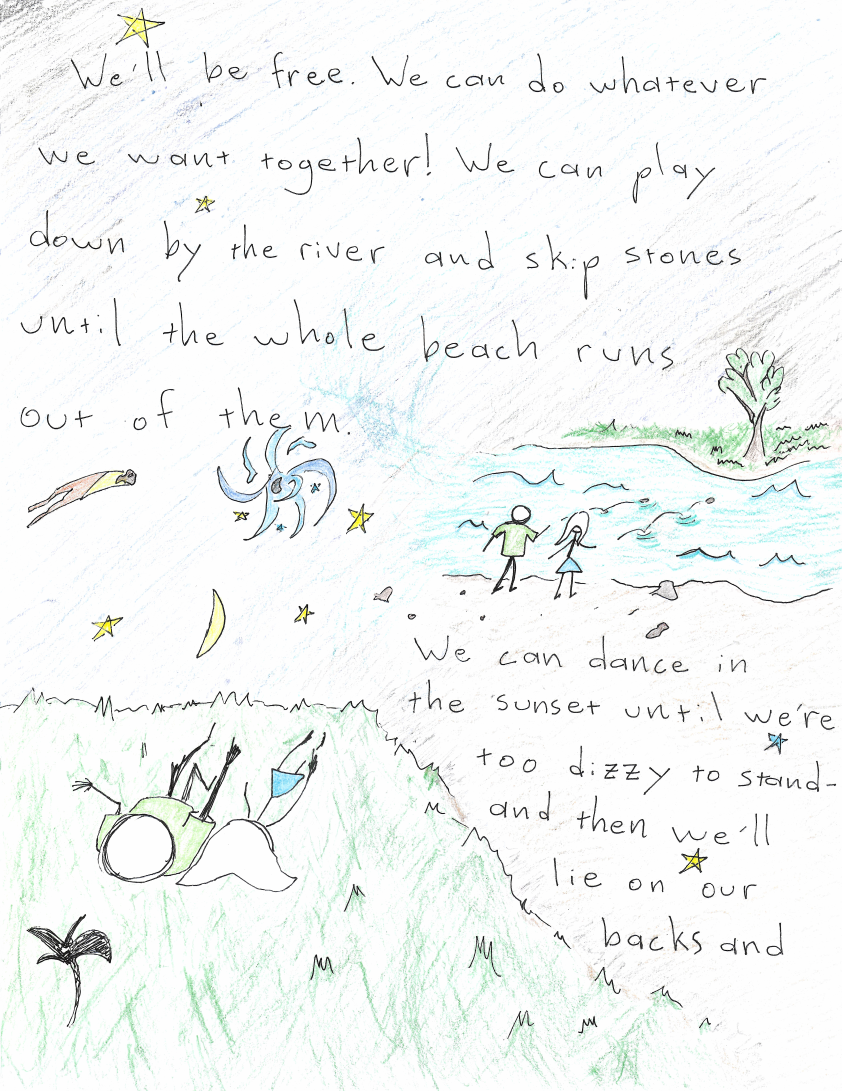 We'll be free. We can do whatever
we want together! We can play
down by the river and skip stones
until the whole beach runs
out of them.
We can dance in
the sunset until we're
too dizzy to stand-
and then we'll
lie on our
backs and